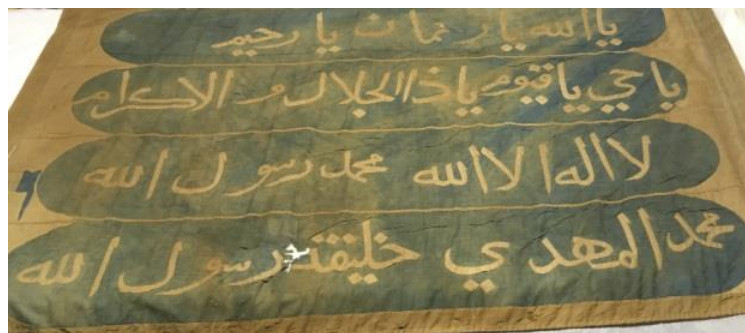 ياالله يا رحمان يا رحيم
ياحي يا قيوم ياذاالجلال و الاكرام
لااله الاالله محمد رسول الله
محمدالمهدي خليفة رسول الله